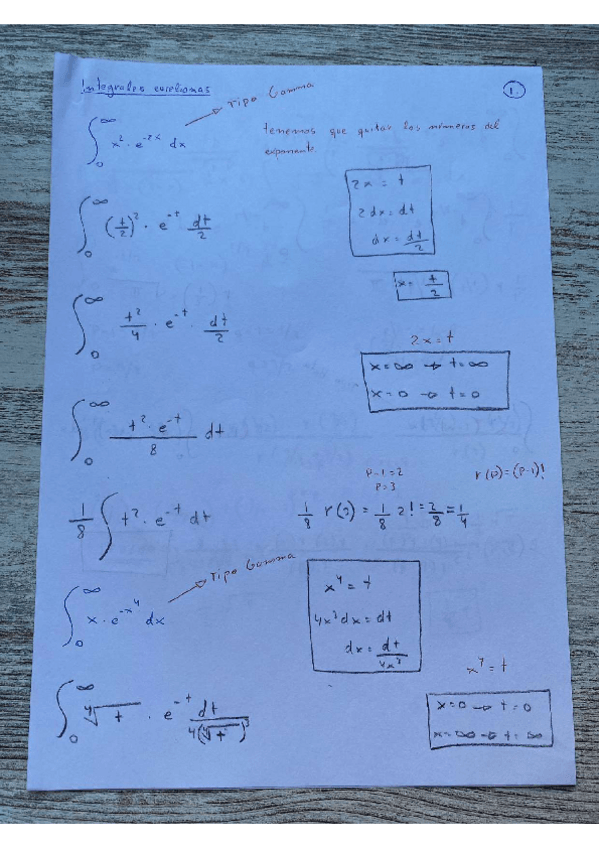 Integrales eurelianas
→ Tipo Gamma
1.
∫₀^∞ x² · e^-2x dx
tenemos que quitar los números del
exponente.
2x = t
2dx = dt
dx = dt/2
∫₀^∞ (t/2)² · e^-t dt/2
x = t/2
∫₀^∞ t²/4 · e^-t · dt/2
2x = t
x = ∞ → t = ∞
x = 0 → t = 0
∫₀^∞ t² · e^-t / 8 dt
p-1 = 2
p = 3
r(p) = (p-1)!
1/8 ∫ t² · e^-t dt
1/8 r(3) = 1/8 2! = 2/8 = 1/4
∫₀^∞ x · e^-x⁴ dx
→ Tipo Gamma
x⁴ = t
4x³ dx = dt
dx = dt/4x³
x⁴ = t
∫₀^∞ ⁴√t · e^-t dt/4(⁴√t)³
x = 0 → t = 0
x = ∞ → t = ∞